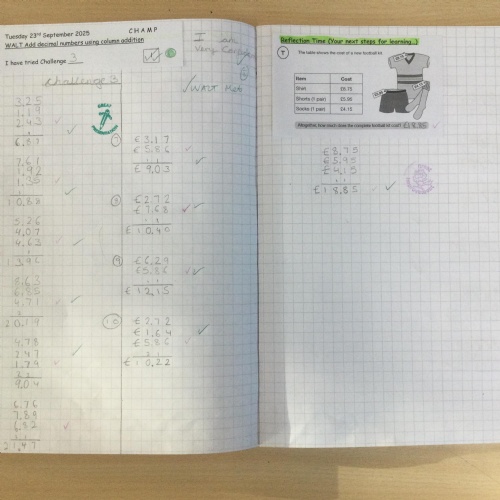 Tuesday 23rd September 2025
CHAMP
WALT Add decimal numbers using column addition
I have tried Challenge 3
I am
very
Challenge 3
WALT Met
3.25
1.19
2.43
6.87
7.61
1.92
1.35
10.88
5.26
4.07
4.63
13.96
8.63
6.85
4.71
20.19
4.78
2.47
1.79
9.04
6.76
7.89
6.82
21.47
7
£3.17
£5.86
£9.03
8
£2.72
£7.68
£10.40
9
£6.29
£5.86
£12.15
10
£2.72
£1.64
£5.86
£10.22
Reflection Time (Your next steps for learning…)
T
The table shows the cost of a new football kit
Item Cost
Shirt £8.75
Shorts (1 pair) £5.95
Socks (1 pair) £4.15
Altogether, how much does the complete football kit cost? £18.85
£8.75
£5.95
£4.15
£18.85